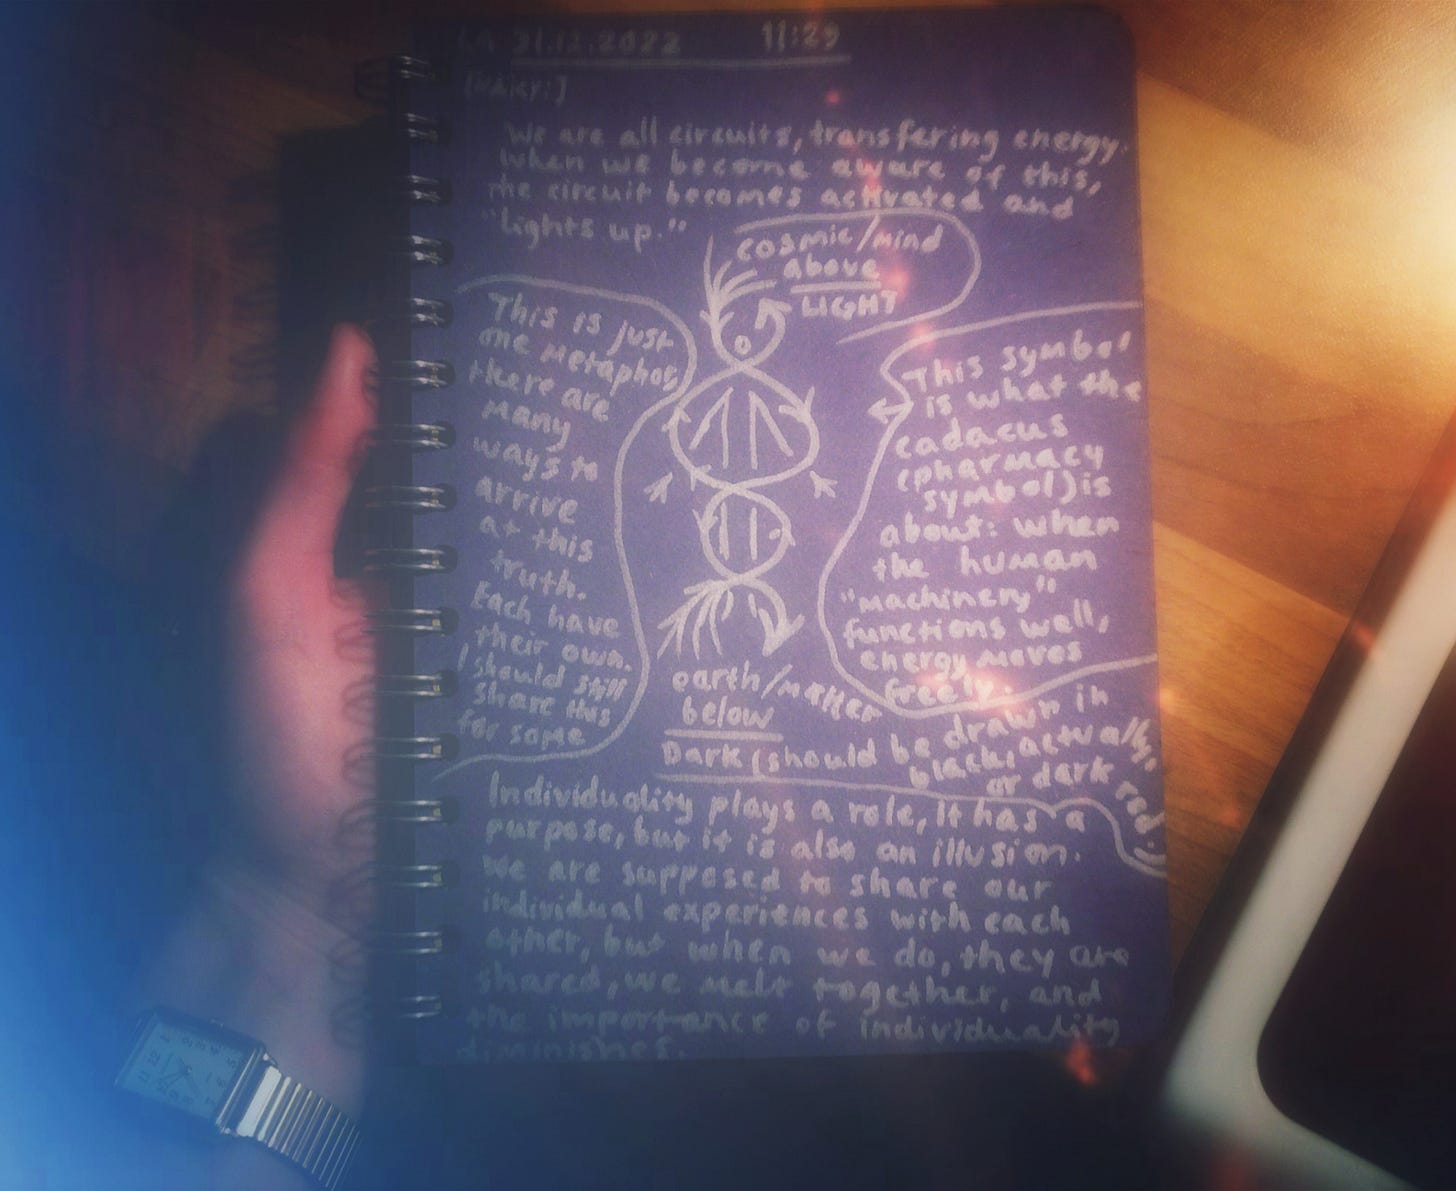 LA 31.12.2022 11:29
We are all circuits, transfering energy.
when we become aware of this,
the circuit becomes activated and
"lights up."
cosmic/mind
above
LIGHT
This is just
one metaphor,
there are
many
ways to
arrive
at this
truth.
Each have
their own.
I should still
share this
for some
This symbol
is what the
cadacus
(pharmacy
symbol) is
about: when
the human
"machinery"
functions well,
energy moves
freely.
earth/matter
below
Dark (should be drawn in
black actually,
or dark red.)
Individuality plays a role, it has a
purpose, but it is also an illusion.
We are supposed to share our
individual experiences with each
other, but when we do, they are
shared, we melt together, and
the importance of individuality
diminishes.